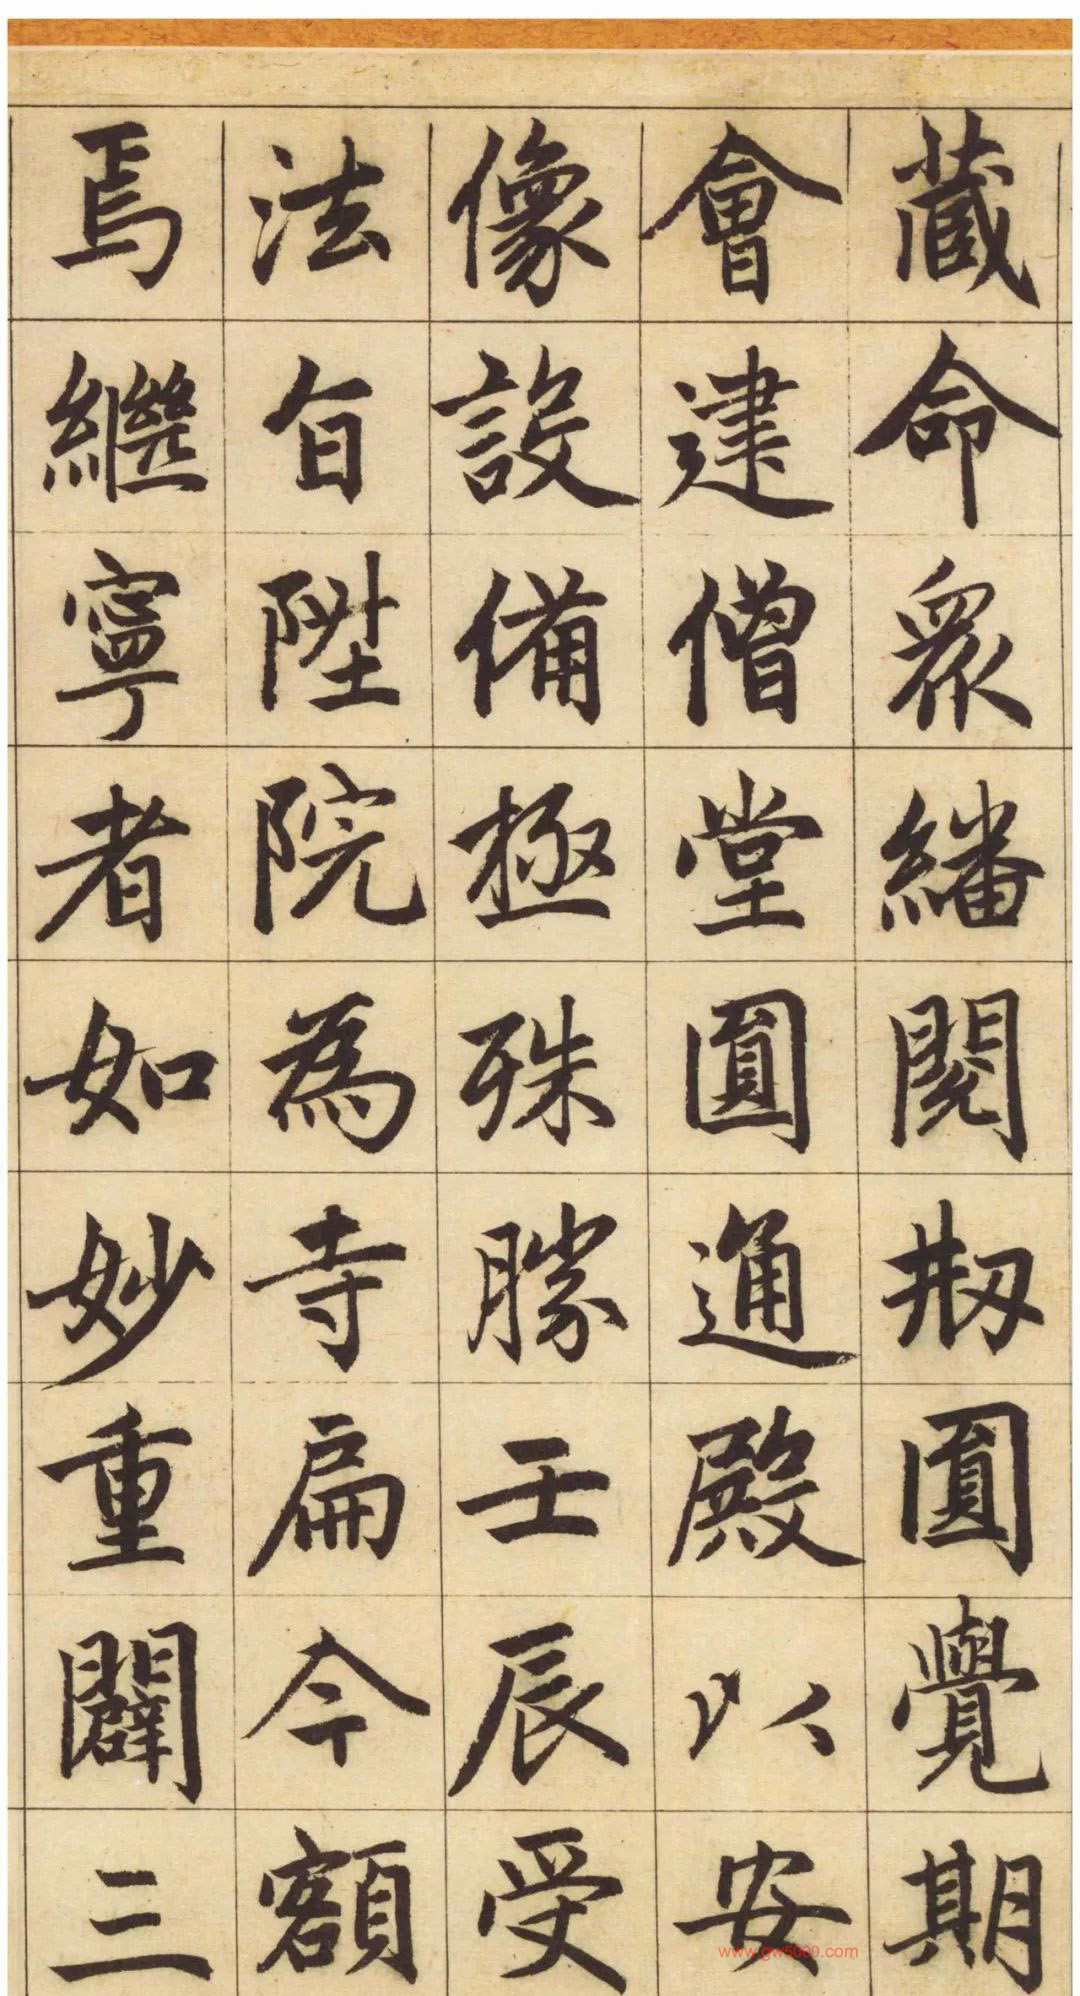 藏命衆繙閱刱圓覺期
會建僧堂圓通殿以安
像設備極殊勝壬辰受
法旨陞院為寺扁今額
焉繼寧者如妙重闢三
www.gw5000.com